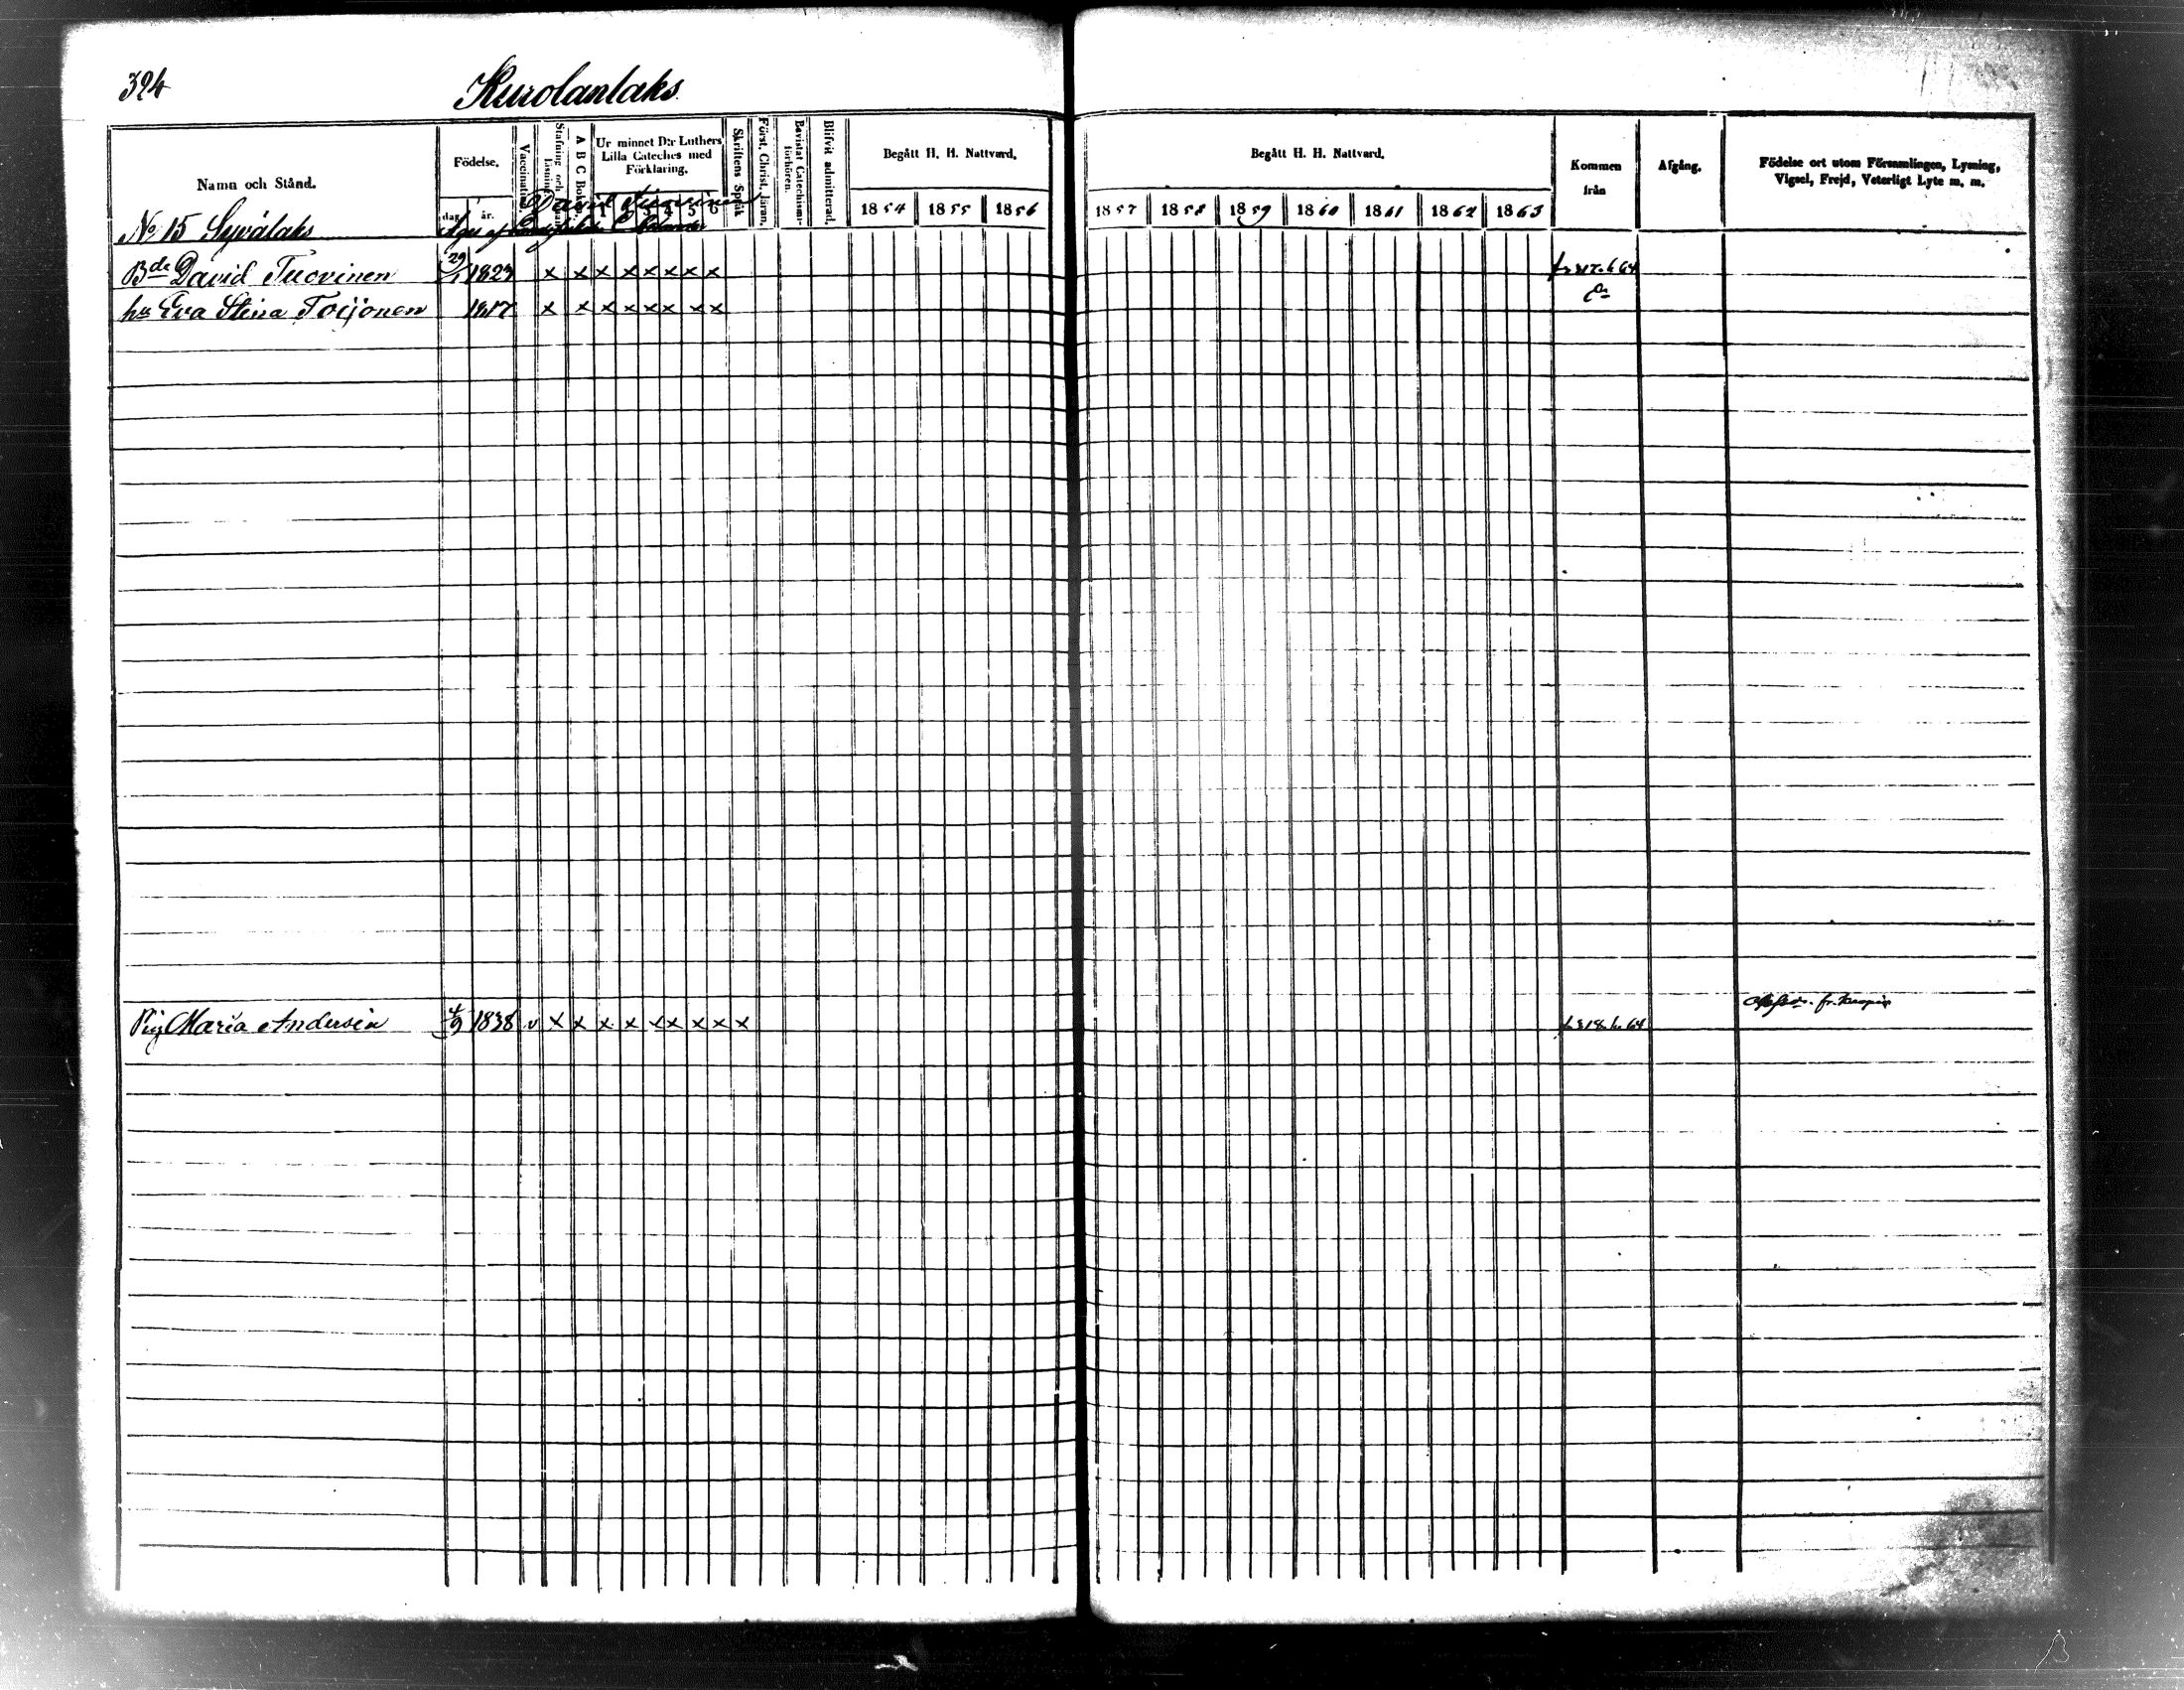 324
Kurolanlaks
Namn och Stånd.
Födelse.
dag
år.
Vaccination
Stafning och
A B C Boken
Ur minnet D:r Luthers
Lilla Cateches med
Förklaring.
1 2 3 4 5 6
Skriftens Språk
Först. Christ. läran.
Bevistat Catechismi-
förhören.
Blifvit admitterad.
Begått H. H. Nattvard.
1854 1855 1856
Begått H. H. Nattvard.
1857 1858 1859 1860 1861 1862 1863
Kommen
från
Afgång.
Födelse ort utom Församlingen, Lysning,
Vigsel, Frejd, Veterligt Lyte m. m.
David Tuovinen
No 15 Syvälaks
Äges af
Bde David Tuovinen 29 1823 x x x x x x x x
hu Eva Stina Toijonen 1817 x x x x x x x x
Pig Maria Andersin 4/9 1838 v x x x x x x x x x
fr. Kuopio